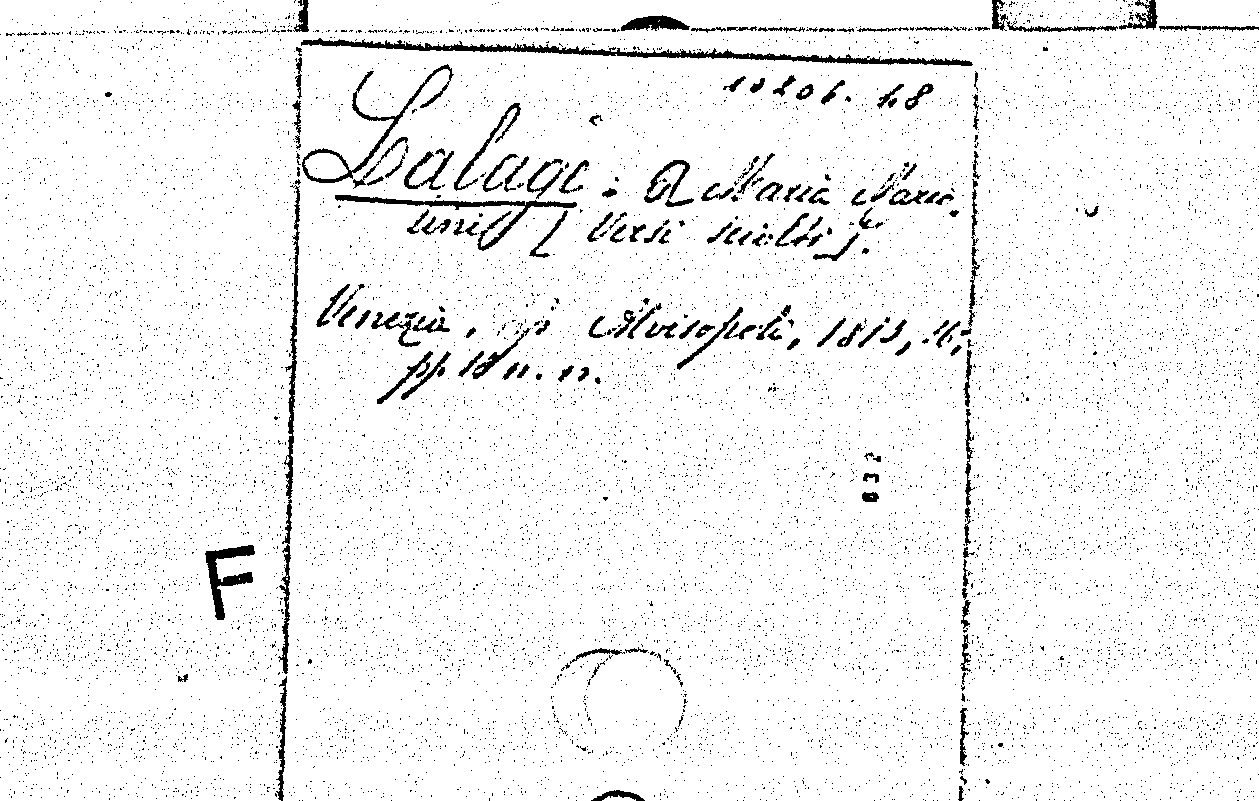 10206. 48
Lalage: A Maria Mario-
tini [Versi sciolti].
Venezia, tip. Alvisopoli, 1813, 16.,
pp. 18 n. n.
032
F